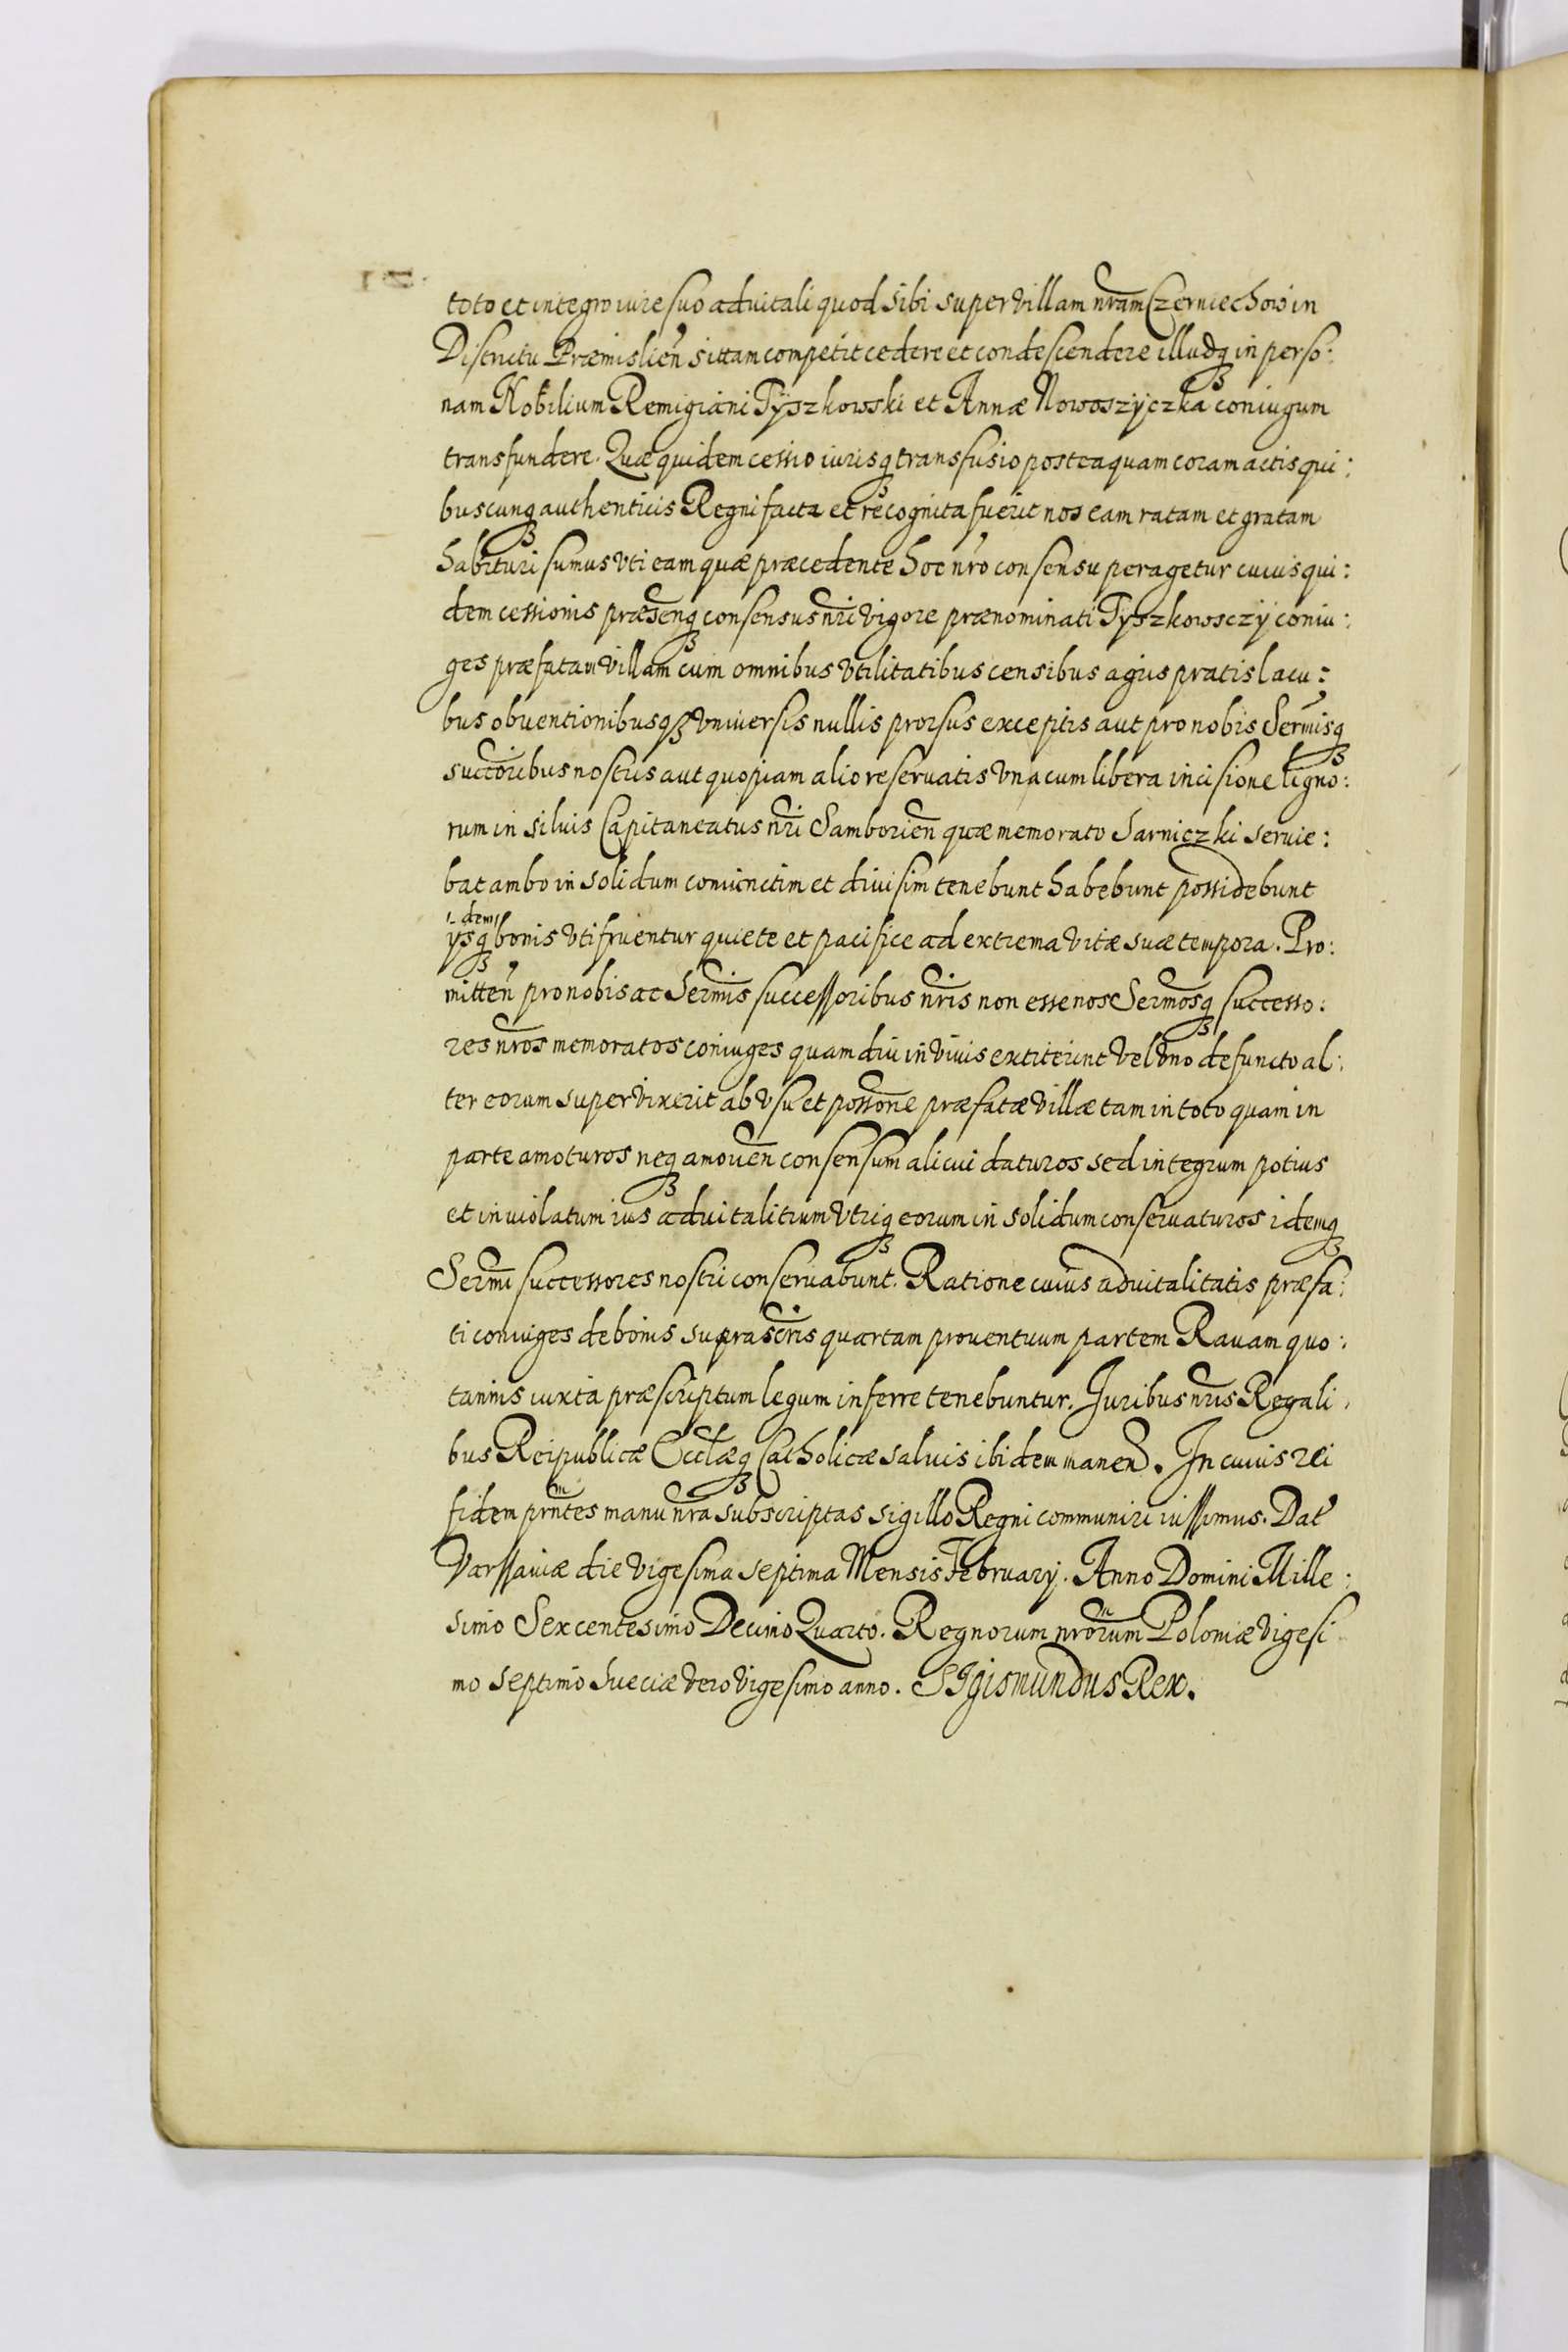 toto et integro iure suo aduitali quod sibi super villam nram Czerniechow in
Districtu Præmislien sittam competit cedere et condescendere illudq in perso:
nam Nobilium Remigiani Tyszkowski et Annæ Nowoszyczka coniugum
transfundere. Quæ quidem cessio iurisq transfusio posteaquam coram actis qui:
buscunq authenticis Regni facta et recognita fuerit nos eam ratam et gratam
habituri sumus vti eam quæ præcedente hoc nro consensu peragetur cuius qui:
dem cessionis præsenq consensus nri vigore prænominati Tyszkowsczy coniu:
ges præfatam villam cum omnibus vtilitatibus censibus agris pratis lacu:
bus obuentionibusq vniuersis nullis prorsus exceptis aut pro nobis Sermisq
succoribus nostris aut quopiam alio reseruatis vna cum libera incisione ligno:
rum in siluis Capitaneatus nri Samborien quæ memorato Sarniczki seruie:
bat ambo in solidum coniunctim et diuisim tenebunt habebunt possidebunt
ysdemq bonis vti fruentur quiete et pacifice ad extrema vitæ suæ tempora. Pro:
mitten pro nobis ac Sermis successoribus nris non esse nos Sermosq successo:
res nros memoratos coniuges quam diu in viuis extiterint vel vno defuncto al:
ter eorum superuixerit ab vsu et possone præfatæ villæ tam in toto quam in
parte amoturos neq amouen consensum alicui daturos sed integrum potius
et inuiolatum ius aduitalitium vtriq eorum in solidum conseruaturos idemq
Sermi successores nostri conseruabunt. Ratione cuius aduitalitatis præfa:
ti coniuges de bonis suprascris quartam prouentuum partem Rauam quo:
tannis iuxta præscriptum legum inferre tenebuntur. Juribus nris Regali:
bus Reipublicæ Ecclæq Catholicæ saluis ibidem manen. In cuius rei
fidem prntes manu nra subscriptas sigillo Regni communiri iussimus. Dat
Varssauiæ die vigesima septima Mensis February. Anno Domini Mille:
simo Sexcentesimo Decimo Quarto. Regnorum nrorum Poloniæ vigesi:
mo septimo Sueciæ vero vigesimo anno. SIgismundus Rex.